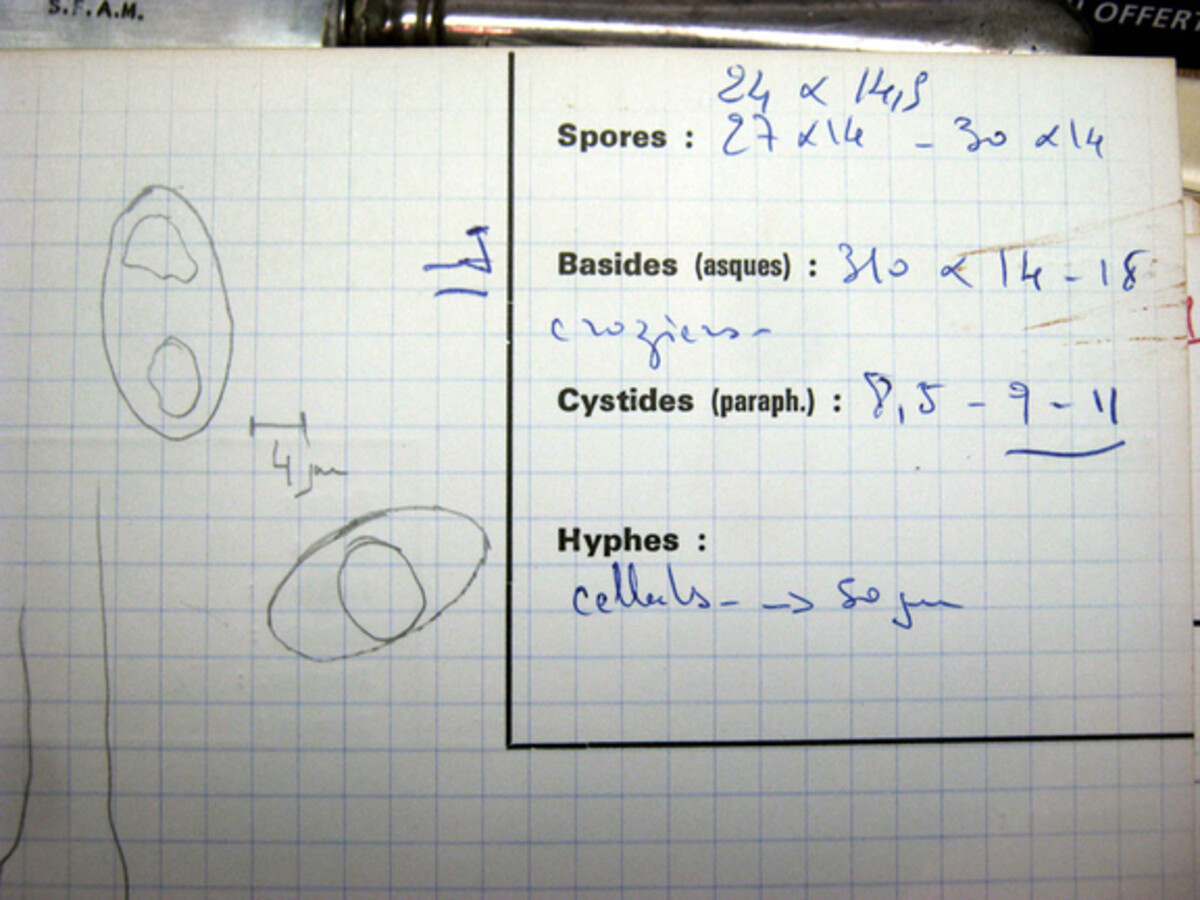 S.F.A.M.
OFFERT
24 x 14,5
Spores : 27 x 14 - 30 x 14
Basides (asques) : 310 x 14 - 18
croziers-
Cystides (paraph.) : 8,5 - 9 - 11
4 µm
Hyphes :
-> 50 µm